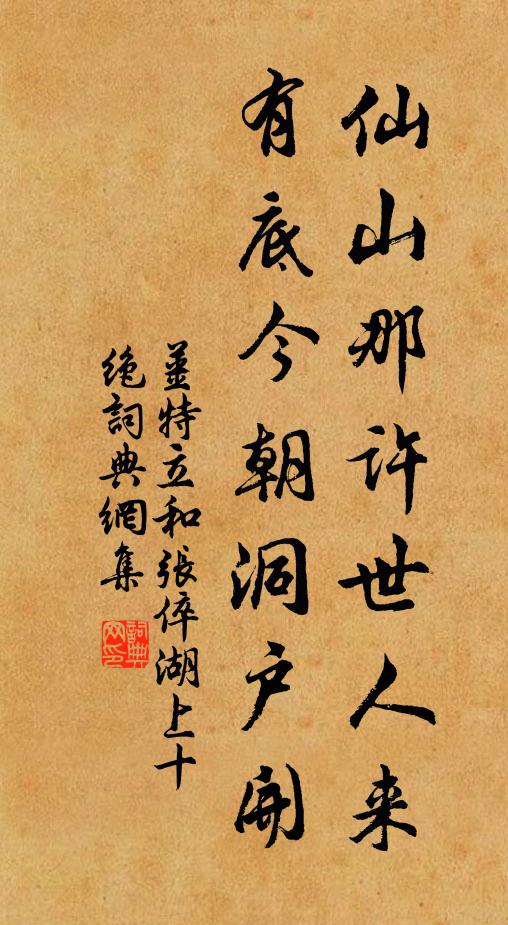 仙山那许世人来
有底今朝洞户開
薑特立和張倅湖上十
絶詞典網集
詞典網印